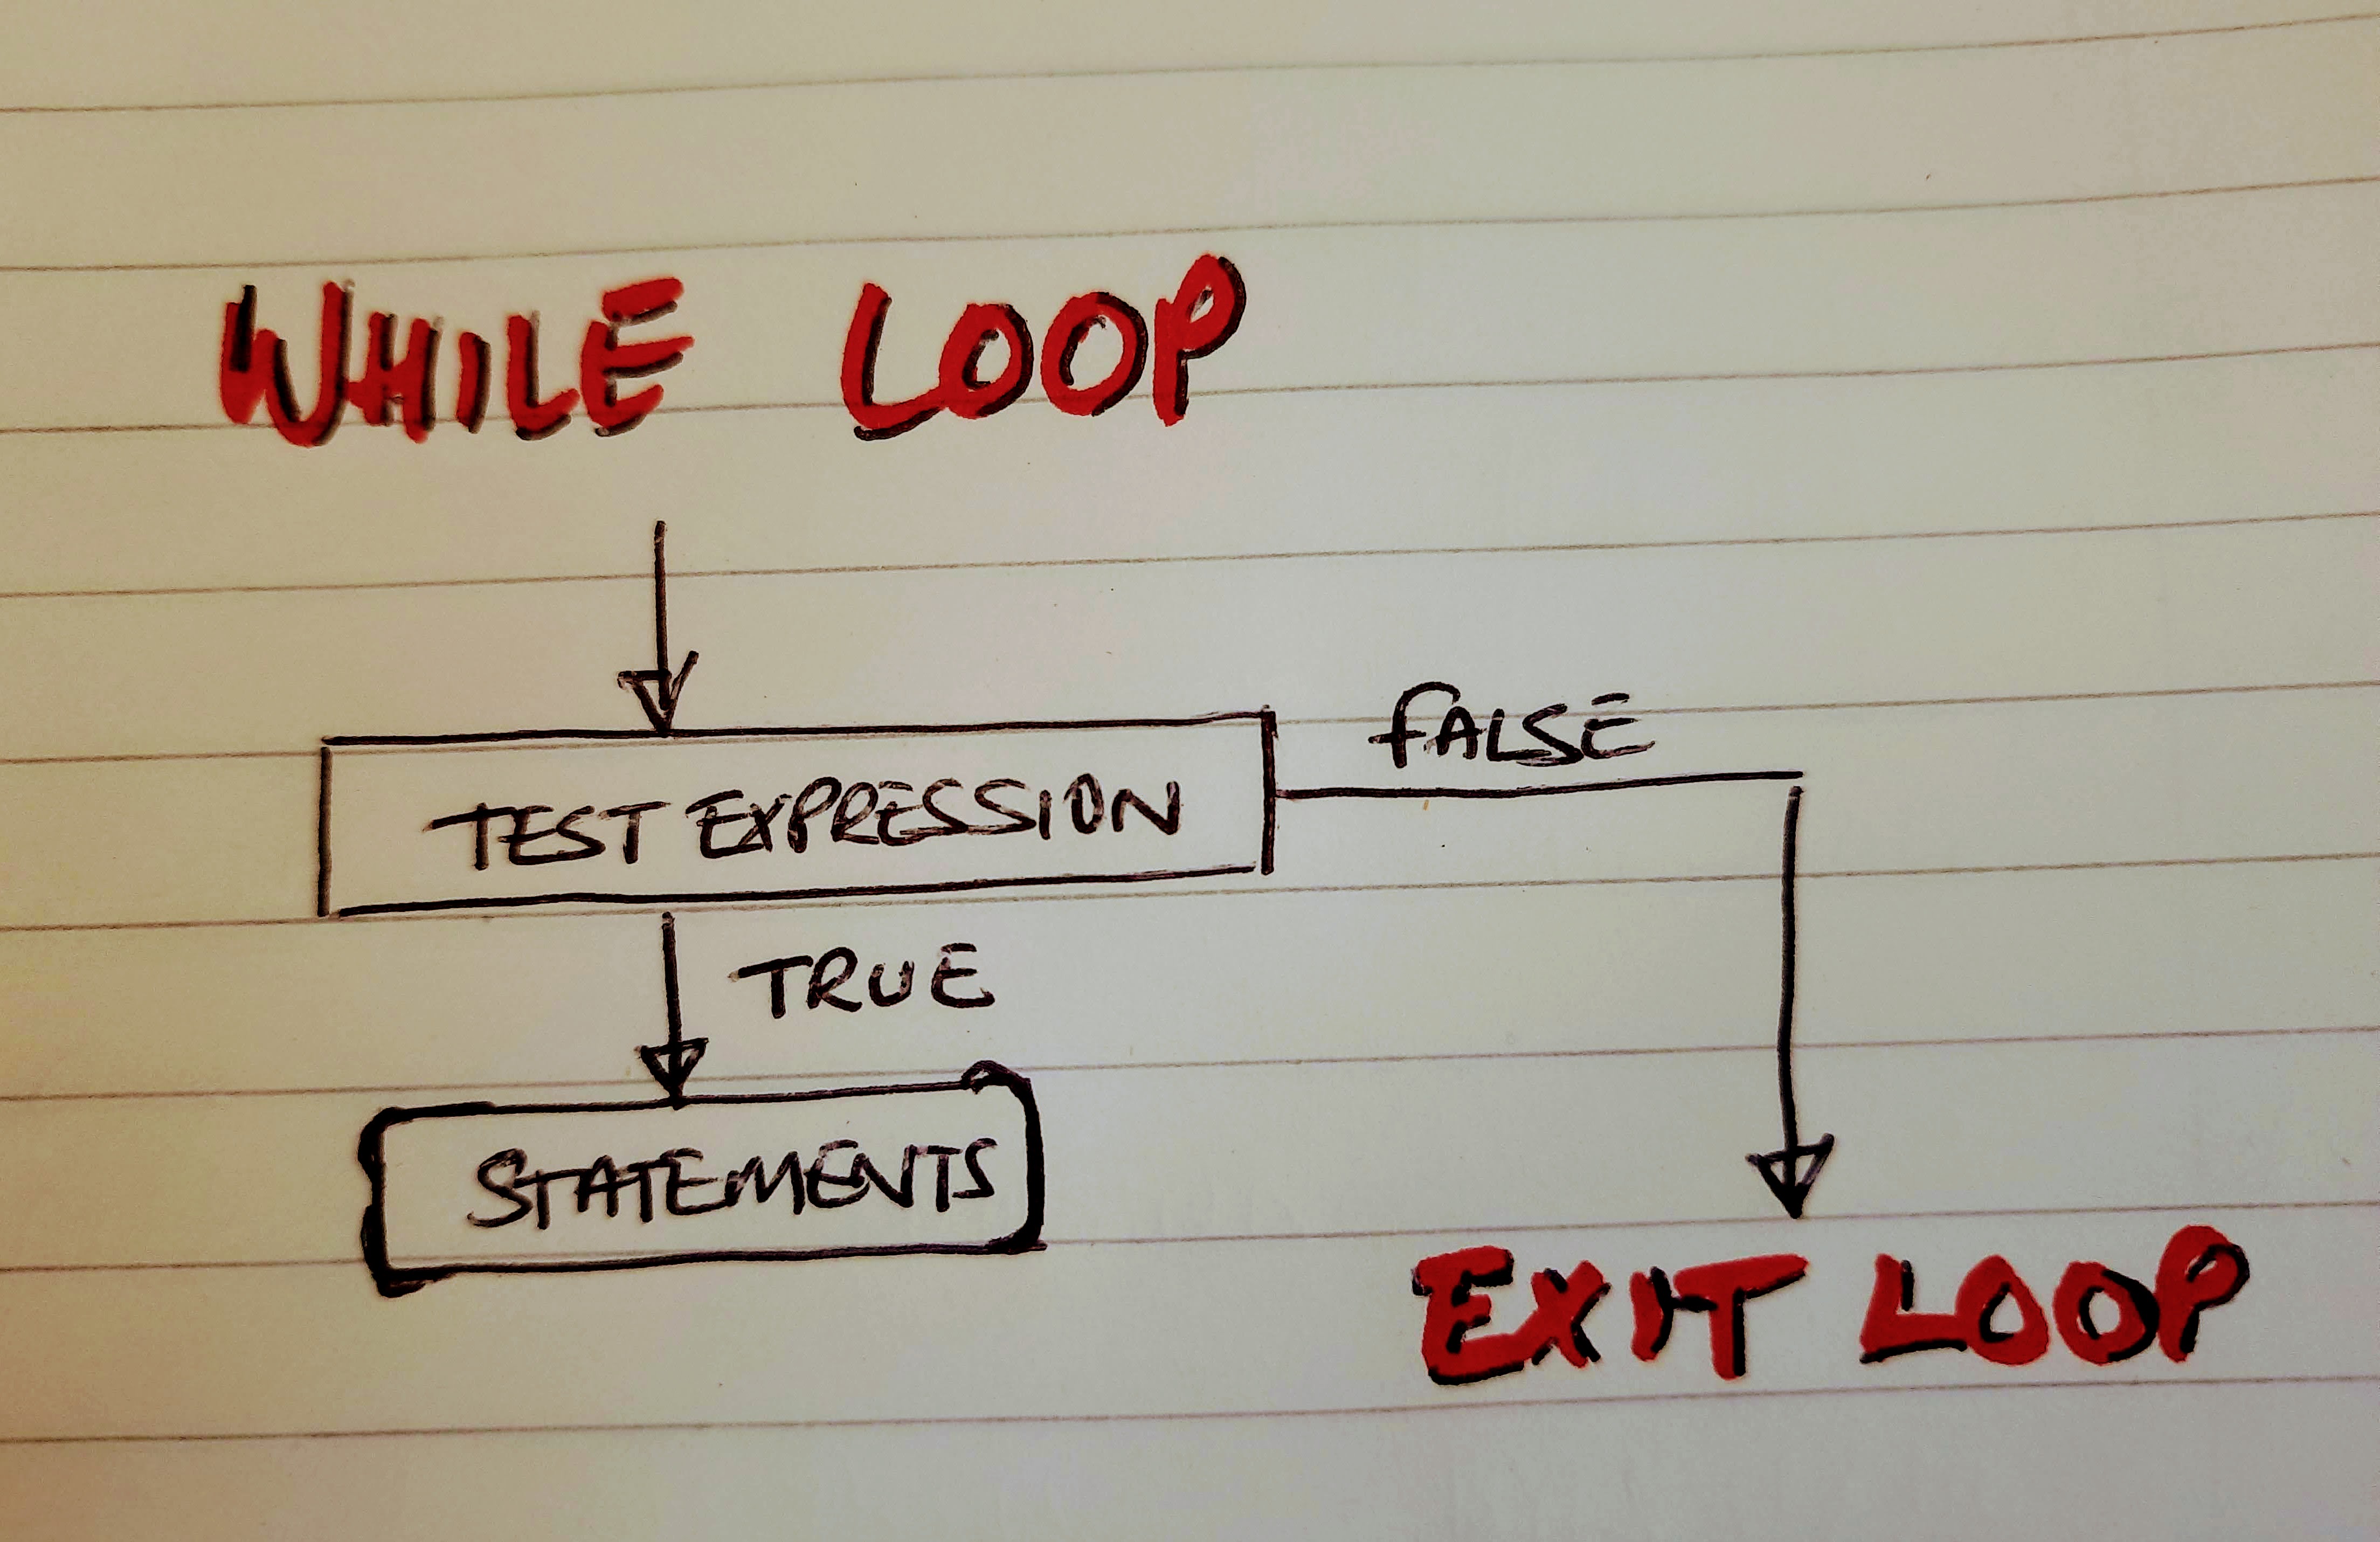 WHILE LOOP
FALSE
TEST EXPRESSION
TRUE
STATEMENTS
EXIT LOOP